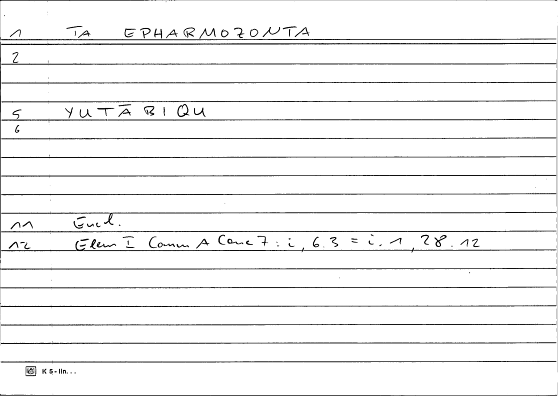 1 TA EPHARMOZONTA
2
5 YUTĀBIQU
6
11 Eucl.
12 Elem I Comm A Conc 7: i, 6.3 = i. 1, 28.12
K 5 - lin...